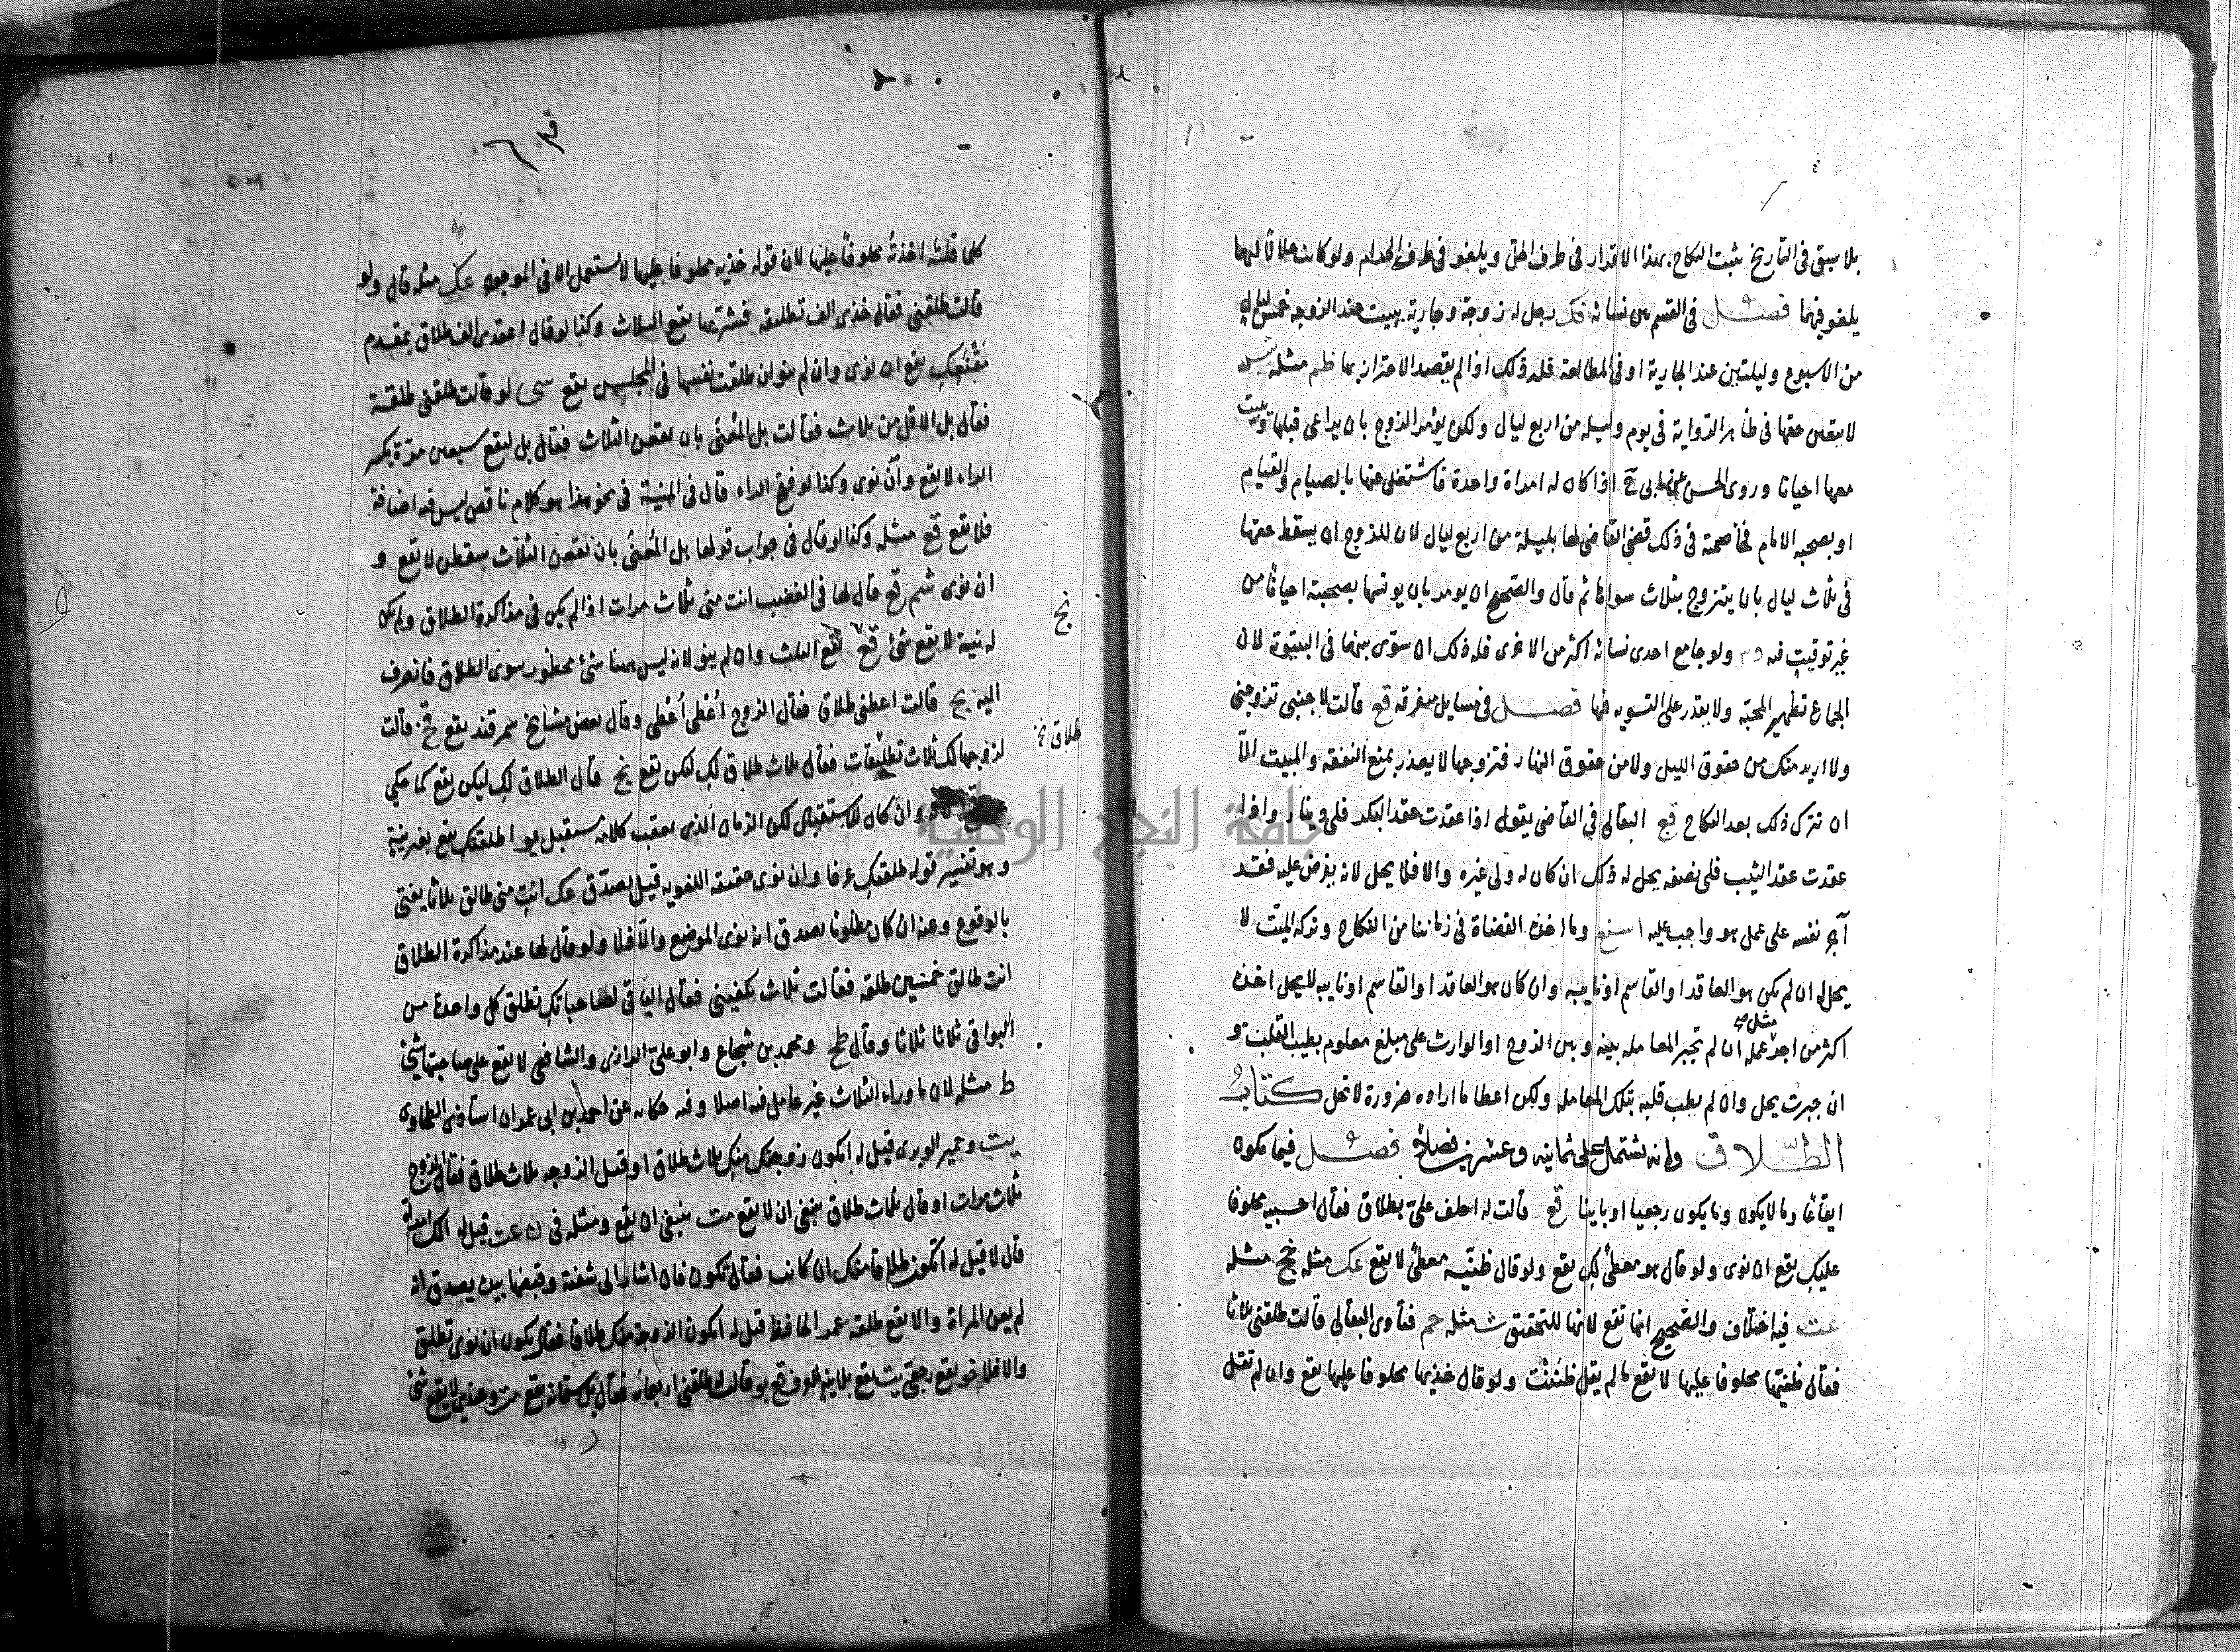 بلا سبق في التاريخ يثبت النكاح بهذا الاقرار في طرف الحق ويلغو في طرف الحرام ولو كانت حلالا لهما
يلغو فيهما فصل في القسم بين نسائه فك رجل له زوجة وجارية يبيت عند الزوجة خمس ليال
من الاسبوع وليلتين عند الجارية او في المطالعة فله ذلك اذا لم يقصد الاضرار بها ظم مثله
لا يتعين حقها في ظاهر الرواية في يوم وليلة من اربع ليال ولكن يؤمر الزوج بان يراعي قبلها ويبيت
معها احيانا وروى الحسن عن ابي ح اذا كان له امراة واحدة فاشتغل عنها بالصيام والقيام
او بصحبة الاماء فخاصمته في ذلك قضى القاضي لها بليلة من اربع ليال لان للزوج ان يسقط حقها
في ثلاث ليال بان يتزوج بثلاث سواها ثم قال والصحيح ان يومر بان يونسها بصحبته احيانا من
غير توقيت فيه ولو جامع احدى نسائه اكثر من الاخرى فله ذلك ان سوى بينهما في البيتوتة لان
الجماع تطهير المحبة ولا يقدر على التسوية فيها فصل في مسايل متفرقة قع قالت لاجنبي تزوجني
ولا اريد منك من حقوق الليل ولا من حقوق النهار فتزوجها لا يعذر بمنع النفقة والمبيت الا
ان تترك ذلك بعد النكاح قع البقالي في القاضي يقول اذا عقدت عقد البكر فلي دينار واذا
عقدت عقد الثيب فلي نصفه يحل له ذلك ان كان له ولي غيره والا فلا يحل لانه يفرض عليه فقد
آجر نفسه على عمل هو واجب عليه وما اخذه القضاة في زماننا من النكاح وتركة الميت لا
يحل له ان لم يكن هو العاقد او القاسم او نايبه وان كان هو العاقد او القاسم او نايبه لا يحل اخذه
اكثر من اجر مثل عمله ان لم تجبر المعاملة بينه وبين الزوج او الوارث على مبلغ معلوم بطيب القلب و
ان جبرت يحل وان لم يطب قلبه بتلك المعاملة ولكن اعطا ما اراده ضرورة لا تحل كتاب
الطلاق وانه يشتمل على ثمانية وعشرين فصلا فصل فيما يكون
ايقاعا وما لا يكون وما يكون رجعيا او باينا قع قالت له احلف علي بطلاق فقال احسبيه محلوفا
عليك يقع ان نوى ولو قال هو معطى لك يقع ولو قال ظنيه معطى لا يقع عك مثله نج مثله
عت فيه اختلاف والصحيح انها تقع لانها للتحقيق ش مثله جم فتاوى البقالي قالت طلقني ثلاثا
فقال ظنيتها محلوفا عليها لا يقع ما لم يقل ظننت ولو قال خذيها محلوفا عليها يقع وان لم تقل
قم ٦
كلما قلت اخذته محلوفا عليها لان قوله خذيه محلوفا عليها لا يستعمل الا في الموجود عك مثله قال ولو
قالت طلقني فقال خذي الف تطليقة فشرعا يقع الثلاث وكذا لو قال اعقدي الف طلاق بمقدم
مقنعتك يقع ان نوى وان لم ينو لن طلقت نفسها في المجلس يقع سى لو قالت طلقني طلقة
فقال بل الاقل من ثلاث فقالت بل المفتى بان لقصن الثلاث فقال بل ليقع سبعين مرة بكسر
الراء لا يقع وان نوى وكذا لو فتح الراء قال في المنية في نحو هذا هو كلام ناقص ليس فيه اضافة
فلا يقع قع مثله وكذا لو قال في جواب قولها بل المفتى بان لقصن الثلاث سقطن لا يقع و
ان نوى شم قع قال لها في الغضب انت مني ثلاث مرات اذا لم يكن في مذاكرة الطلاق ولم يكن
له نية لا يقع شئ قع تقع الثلث وان لم ينو لانه ليس ههنا شئ محظور سوى الطلاق فانصرف
اليه نج قالت اعطني طلاق فقال الزوج اعطى اعطى وقال بعض مشايخ سمرقند يقع قالت
لزوجها لك ثلاث تطليقات فقال ثلاث طلاق لك لكن تقع نج قال الطلاق لك ليكن يقع كما حكي
وان كان للاستقبال لكن الزمان الذي يعقب كلامه مستقبل هو اطلقتك يقع بغير نية
وهو تفسير قوله طلقتك عرفا وان نوى حقيقة اللغوية قيل يصدق عك انت مني طالق ثلاثا يفتي
بالوقوع وعنه ان كان مظلوما يصدق انه نوى الموضع والا فلا ولو قال لها عند مذاكرة الطلاق
انت طالق خمسين طلقة فقالت ثلاث تكفيني فقال الباقي لصاحباتك تطلق كل واحدة من
البواقي ثلاثا ثلاثا وقال طح ومحمد بن شجاع وابو علي الرازي والشافعي لا يقع على صاحبتها شئ
ط مثله لان ما وراء الثلاث غير عامل فيه اصلا وفيه حكاية عن احمد بن ابي عمران استاذ الطحاوي
يت وحمير الوبري قيل له ايكون زوجتك منك بثلاث طلاق او قيل الزوجة ثلاث طلاق فقال الزوج
ثلاث مرات او قال ثلاث طلاق ينبغي ان لا يقع مت ينبغي ان يقع ومثله في عت قيل له الك امراة
قال لا قيل له اتكون طلاقا منك ان كانت فقال تكون فان اشار الى شفته وقبضها بين يصدق انه
لم يعن المراة والا يقع طلقة عمر الحافظ قيل له اتكون الزوجة منك طلاق فقال يكون ان نوى تطلق
والا فلا
نج
طلاق نج